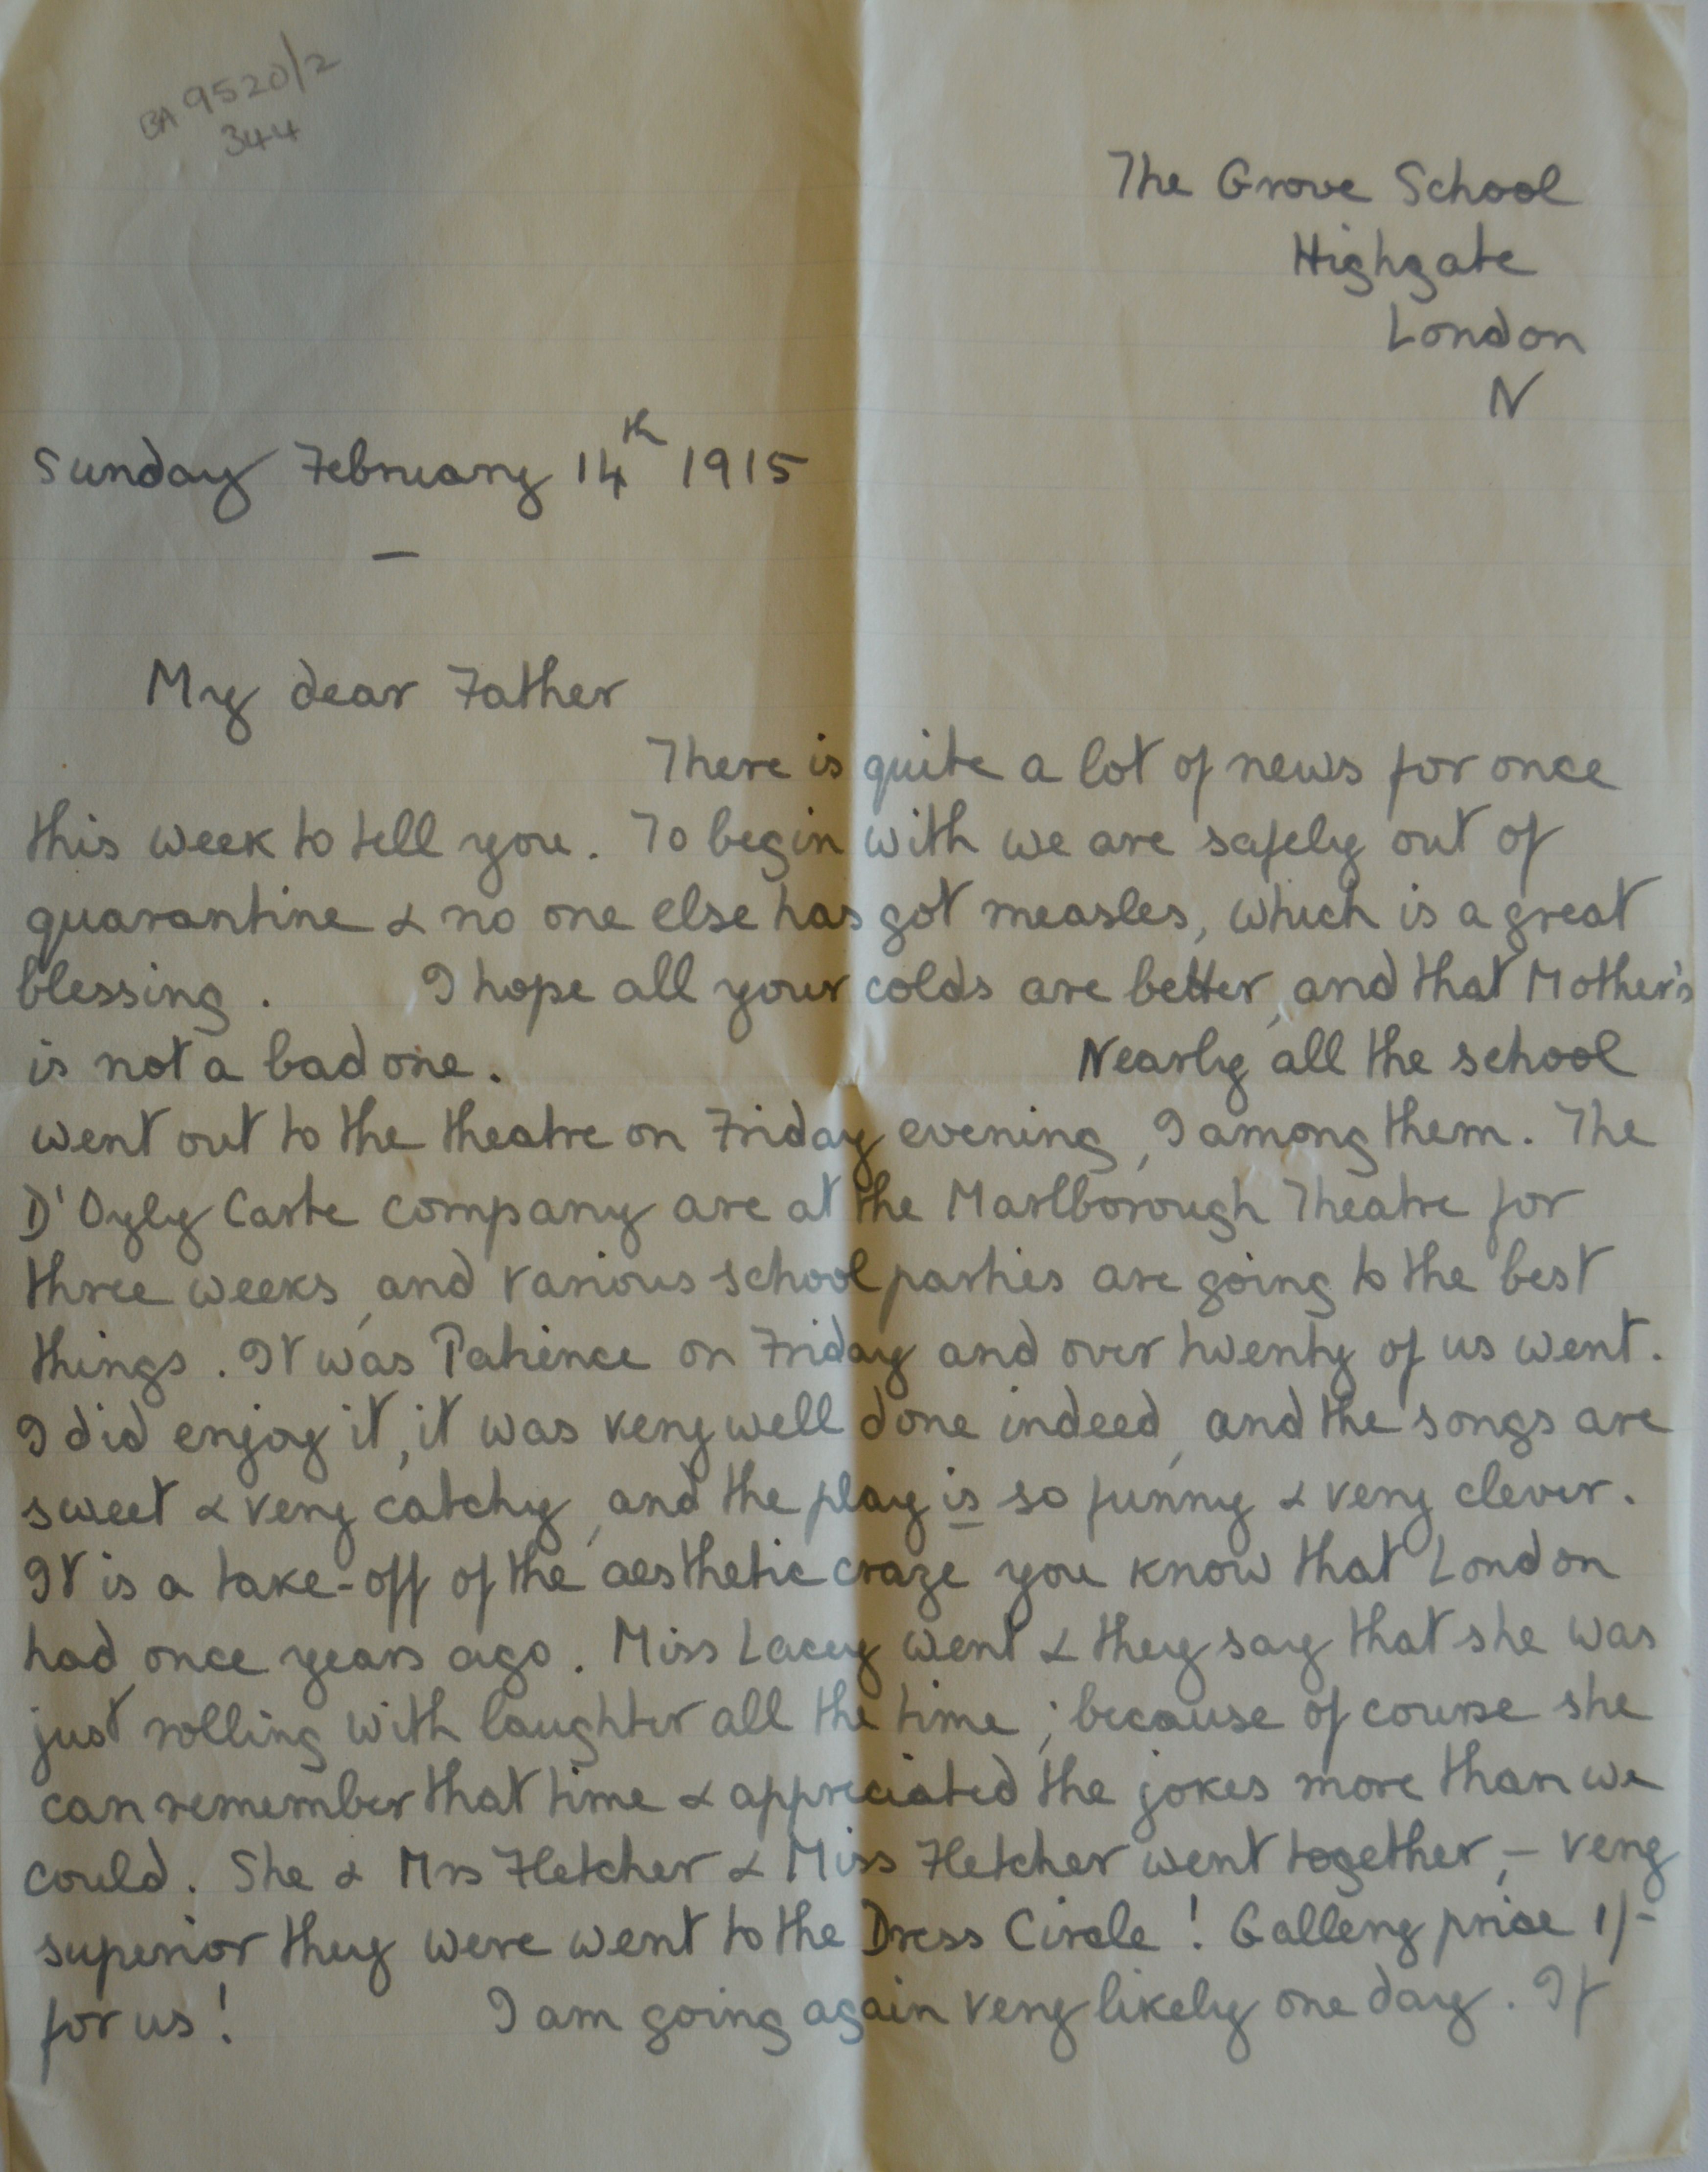 BA 9520/2
344
The Grove School
Highgate
London
N
Sunday February 14th 1915
—
My dear Father
There is quite a lot of news for once
this week to tell you. To begin with we are safely out of
quarantine & no one else has got measles, which is a great
blessing. I hope all your colds are better, and that Mother's
is not a bad one. Nearly all the school
went out to the theatre on Friday evening, I among them. The
D'Oyly Carte company are at the Marlborough Theatre for
three weeks, and various school parties are going to the best
things. It was Patience on Friday and over twenty of us went.
I did enjoy it, it was very well done indeed, and the songs are
sweet & very catchy, and the play is so funny & very clever.
It is a take-off of the aesthetic craze you know that London
had once years ago. Miss Lacey went & they say that she was
just rolling with laughter all the time; because of course she
can remember that time & appreciated the jokes more than we
could. She & Mrs Fletcher & Miss Fletcher went together, - very
superior they were went to the Dress Circle! Gallery price 1/-
for us! I am going again very likely one day. If